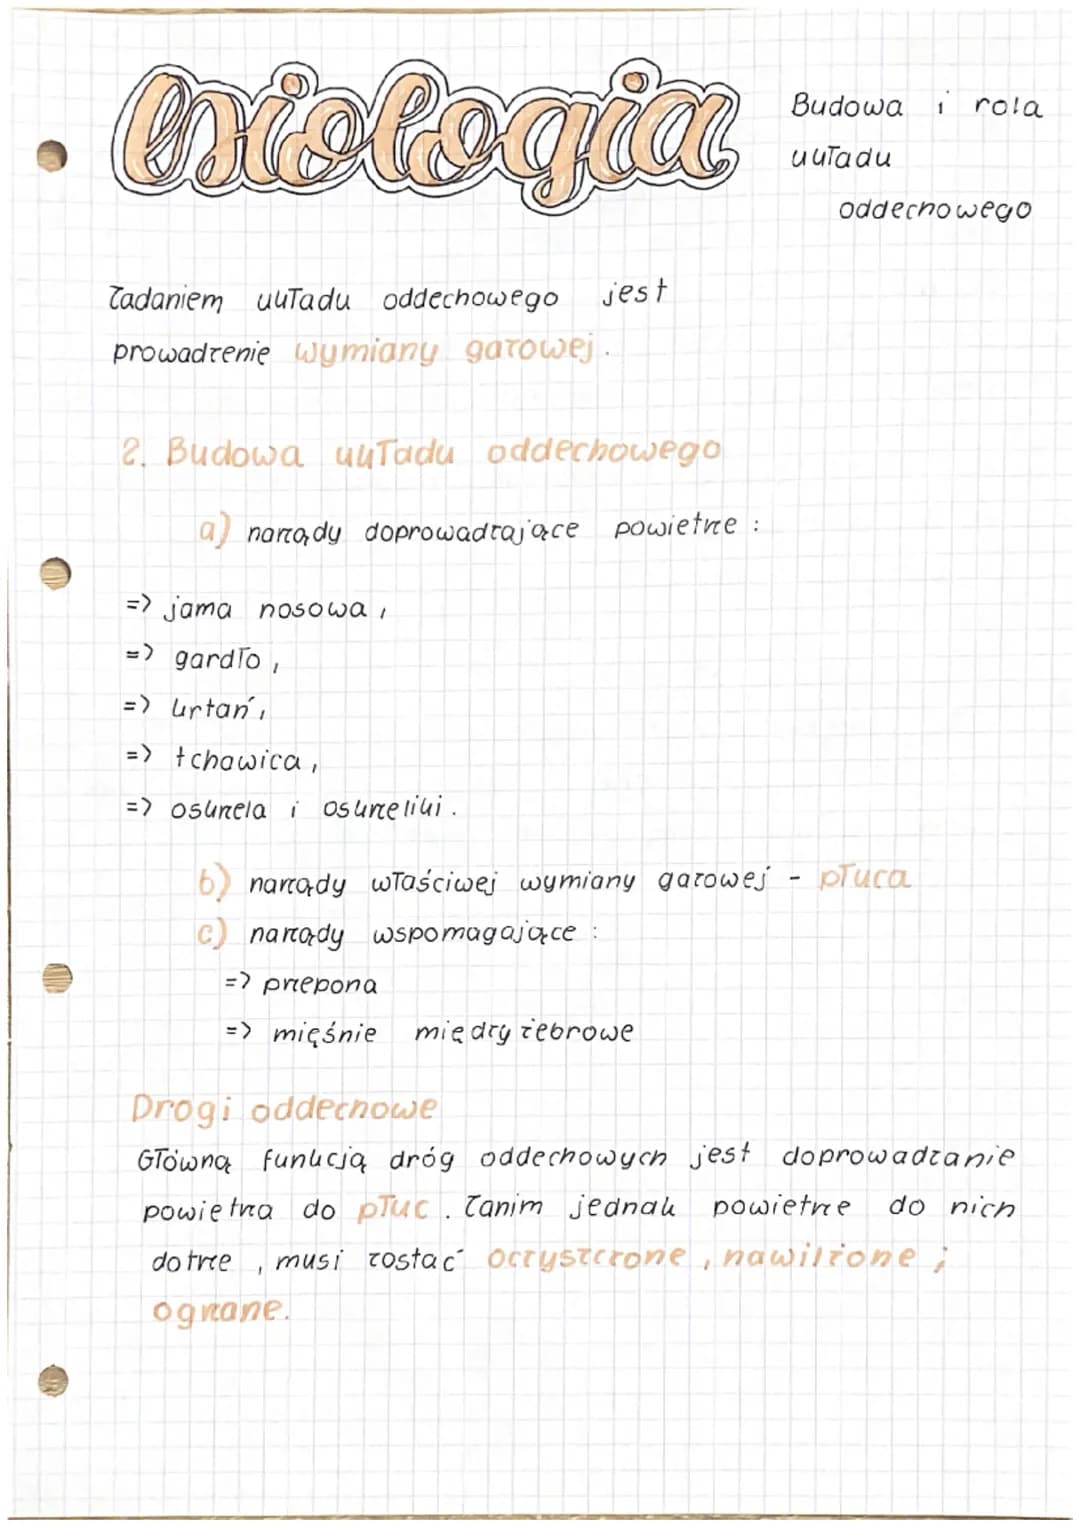 biologia
Budowa i rola
układu
oddechowego
Zadaniem układu oddechowego jest
prowadzenie wymiany gazowej.
2. Budowa układu oddechowego
a) narządy doprowadzające powietrze :
=> jama nosowa,
=> gardło,
=> krtań,
=> tchawica,
=> oskrzela i oskrzeliki.
b) narządy właściwej wymiany gazowej - płuca
c) narządy wspomagające :
=> przepona
=> mięśnie międzyżebrowe
Drogi oddechowe
Główną funkcją dróg oddechowych jest doprowadzanie
powietrza do płuc. Zanim jednak powietrze do nich
dotrze, musi zostać oczyszczone, nawilżone i
ogrzane.